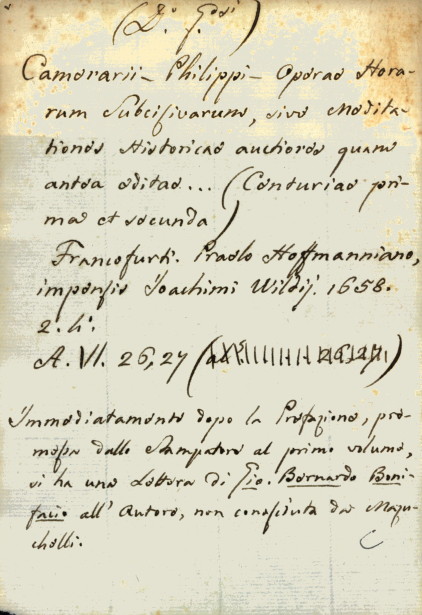 (D.º G.
Camerarii – Philippi – Operae Hora-
rum Subcisivarum, sive Medita-
tiones Historicae auctiores quam
antea editae... (Centuriae pri-
mae et secunda)
Francofurti. Praelo Hoffmanniano,
impensis Joachimi Wildij. 1658.
2. li.
A. VI. 26, 27 (
Immediatamente dopo la Prefazione, pre-
messa dallo Stampatore al primo volume,
si ha una Lettera di Gio. Bernardo Boni-
facio all' Autore, non conosciuta da Mazu-
chelli.